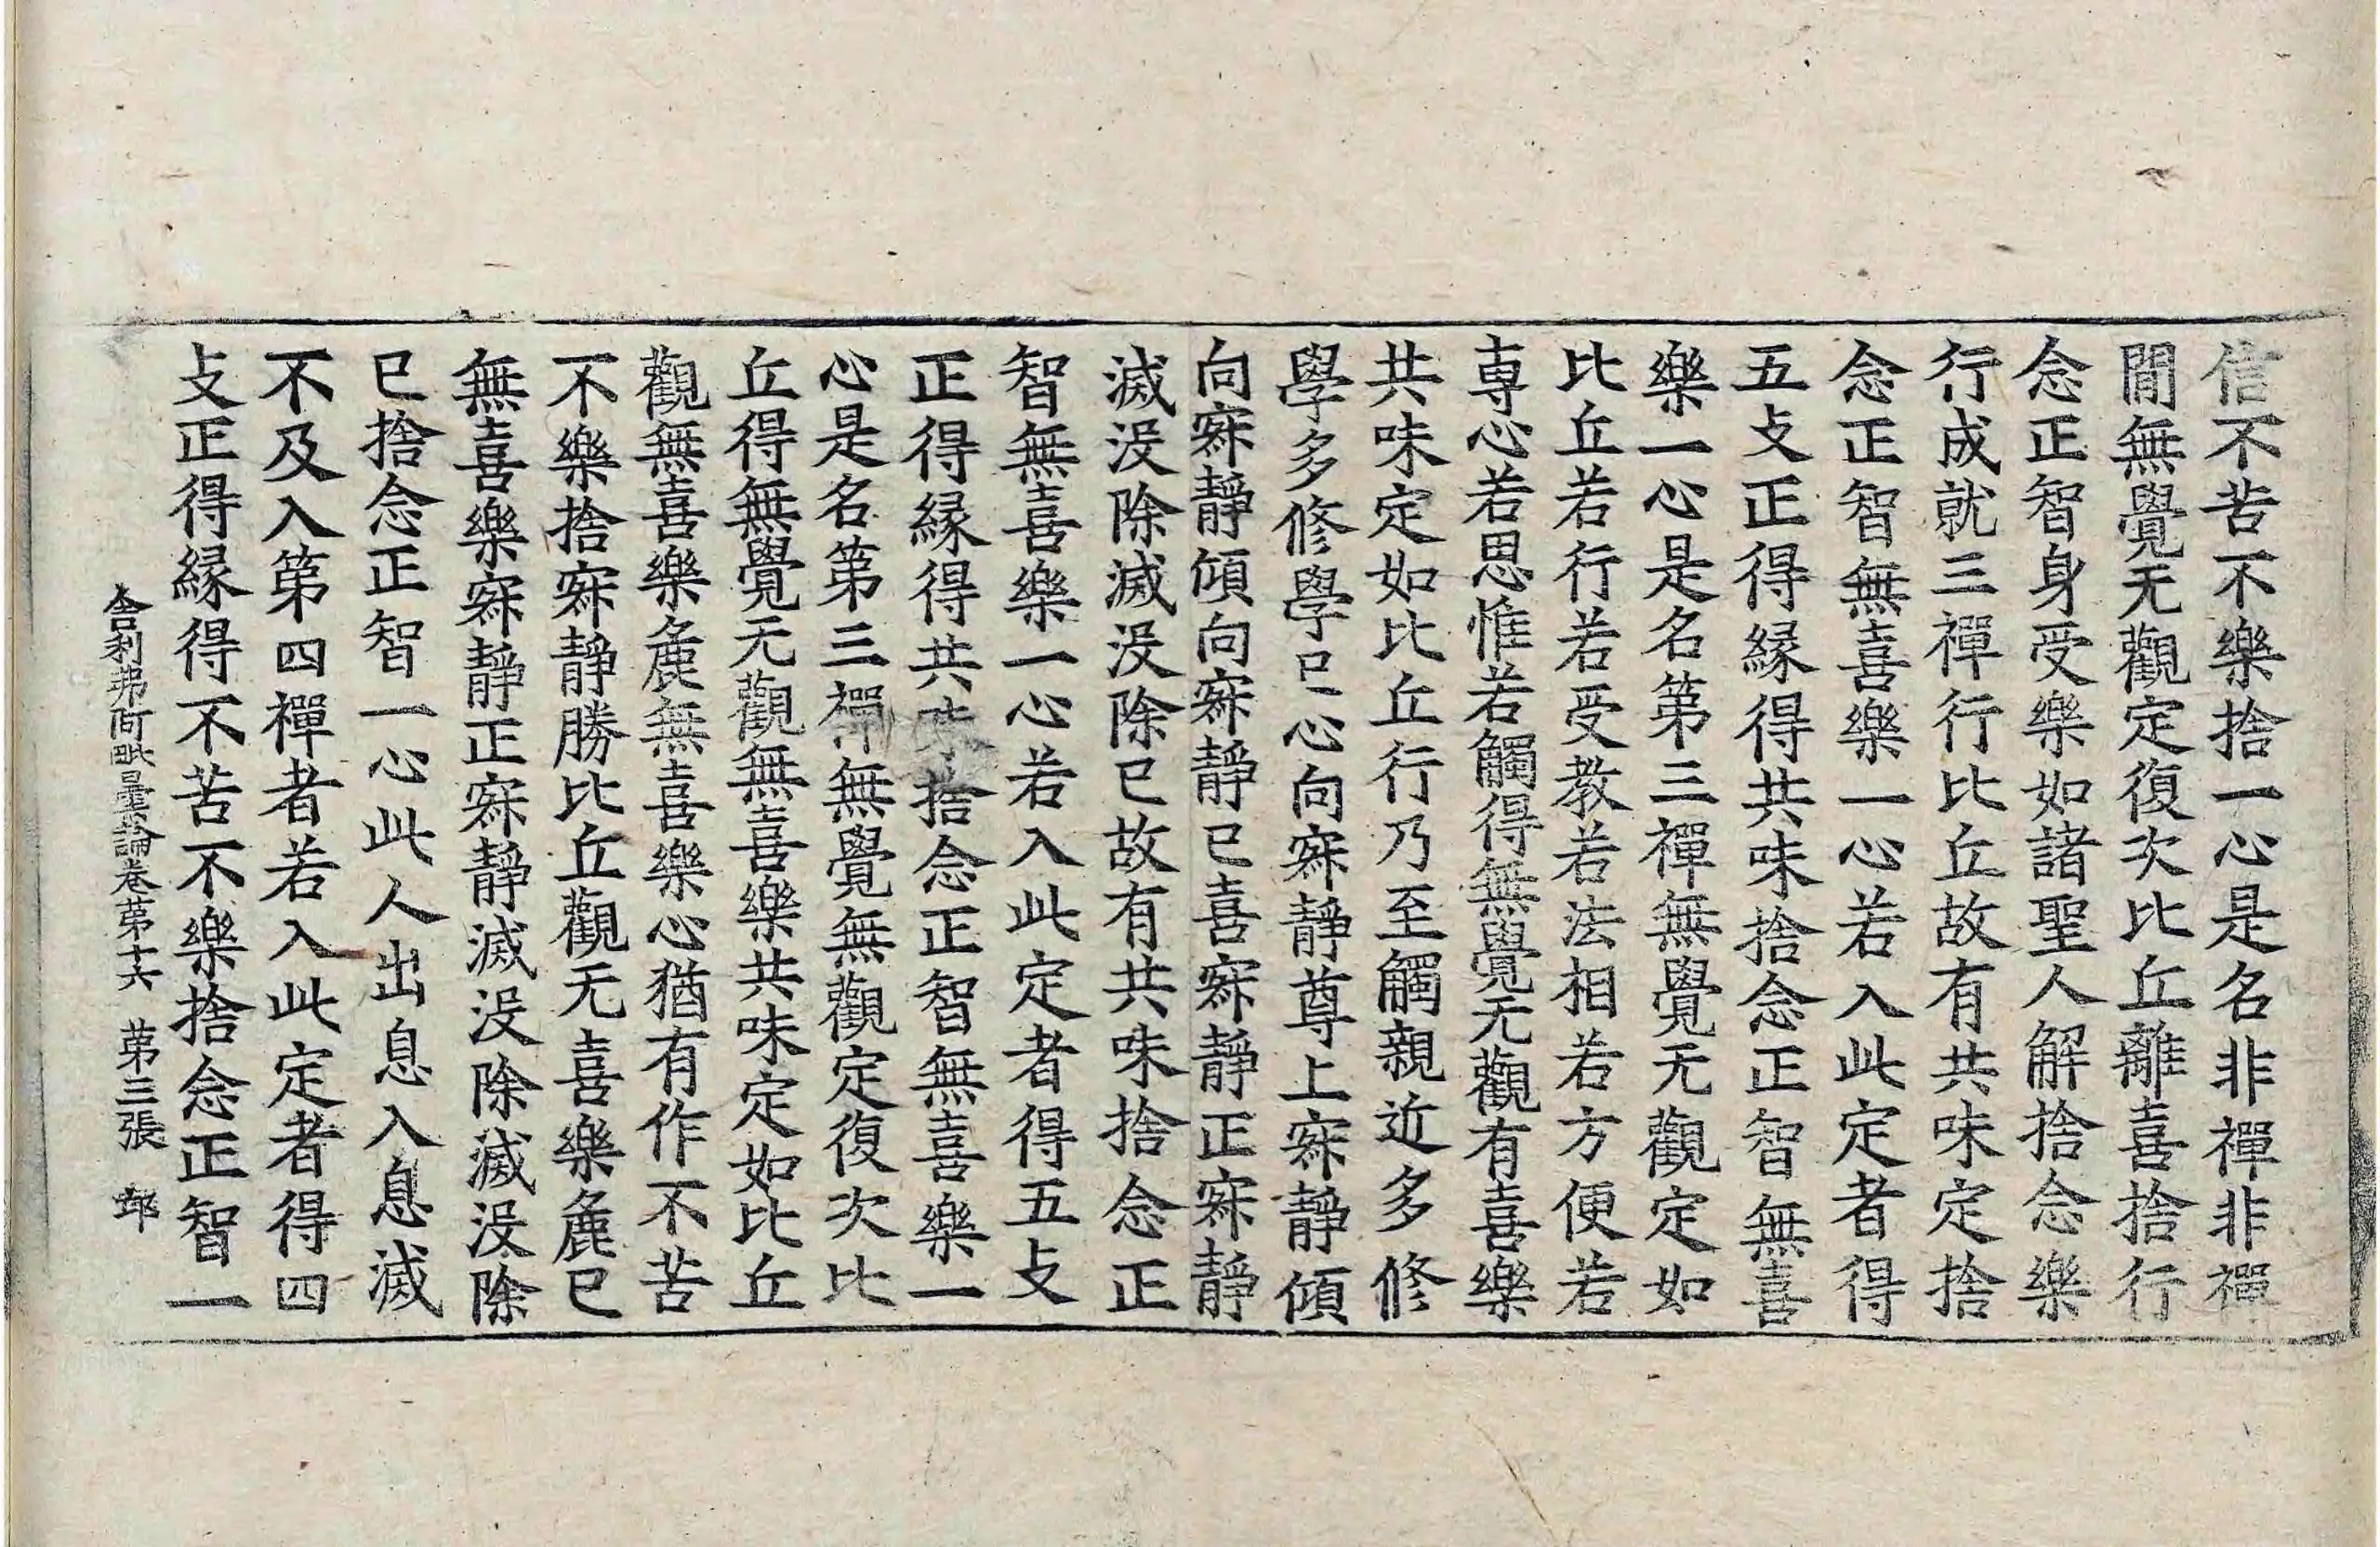 信不苦不樂捨一心是名非禪非禪
閒無覺无觀定復次比丘離喜捨行
念正智身受樂如諸聖人解捨念樂
行成就三禪行比丘故有共味定捨
念正智無喜樂一心若入此定者得
五攴正得緣得共味捨念正智無喜
樂一心是名第三禪無覺无觀定如
比丘若行若受教若法相若方便若
專心若思惟若觸得無覺无觀有喜樂
共味定如比丘行乃至觸親近多修
學多修學已心向寂靜尊上寂靜傾
向寂靜傾向寂靜已喜寂靜正寂靜
滅沒除滅沒除已故有共味捨念正
智無喜樂一心若入此定者得五攴
正得緣得共味捨念正智無喜樂一
心是名第三禪無覺無觀定復次比
丘得無覺无觀無喜樂共味定如比丘
觀無喜樂麁無喜樂心猶有作不苦
不樂捨寂靜勝比丘觀无喜樂麁已
無喜樂寂靜正寂靜滅沒除滅沒除
已捨念正智一心此人出息入息滅
不及入第四禪者若入此定者得四
攴正得緣得不苦不樂捨念正智一
舍利弗阿毗曇論卷第十六 第三張